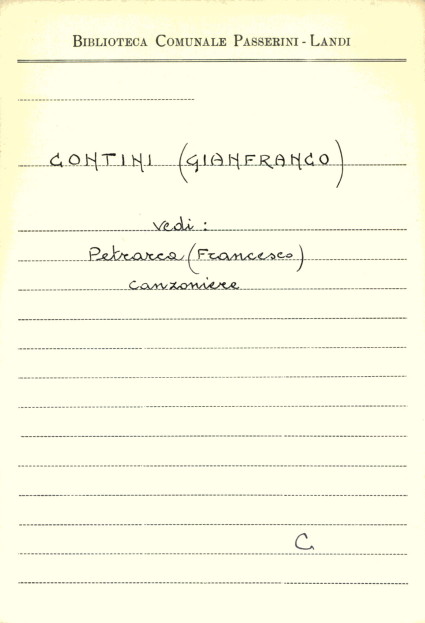 BIBLIOTECA COMUNALE PASSERINI - LANDI
CONTINI (GIANFRANCO)
vedi :
Petrarca (Francesco)
Canzoniere
C